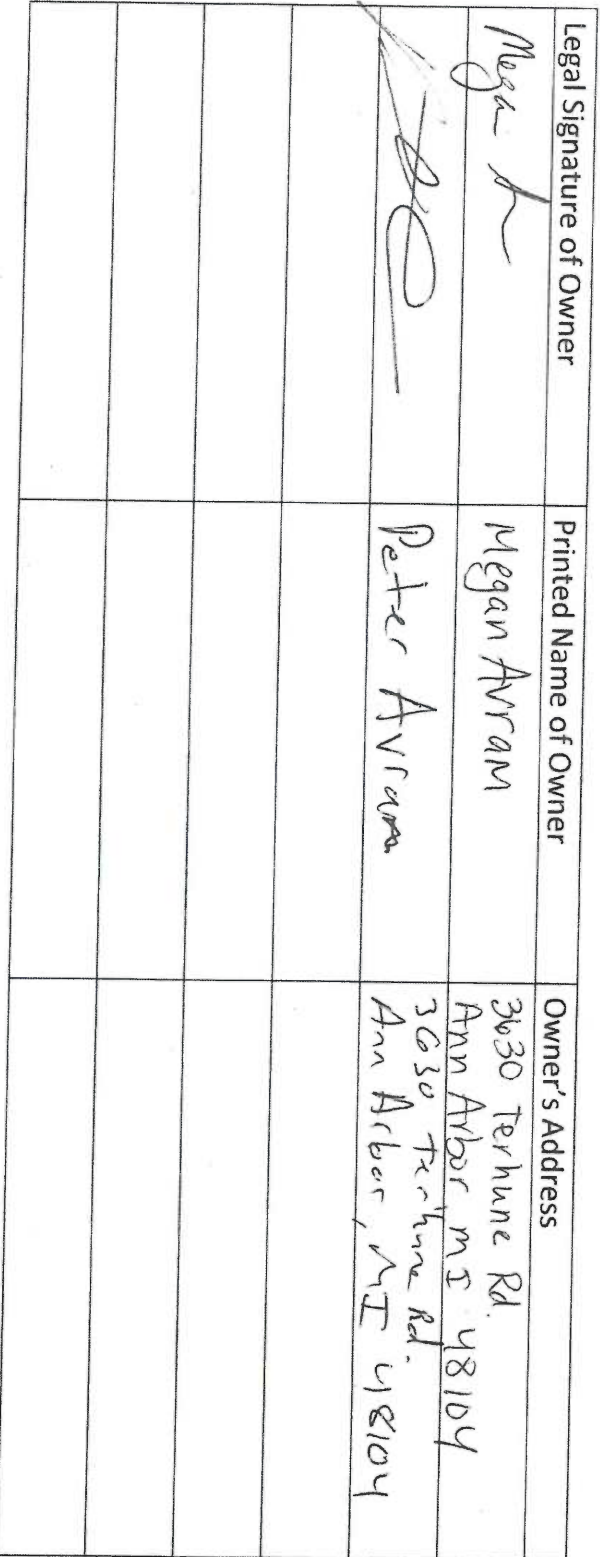 Legal Signature of Owner
Printed Name of Owner
Owner's Address
Megan
Megan Avram
3630 Terhune Rd.
Ann Arbor, MI 48104
Peter Avram
3630 Terhune Rd.
Ann Arbor, MI 48104